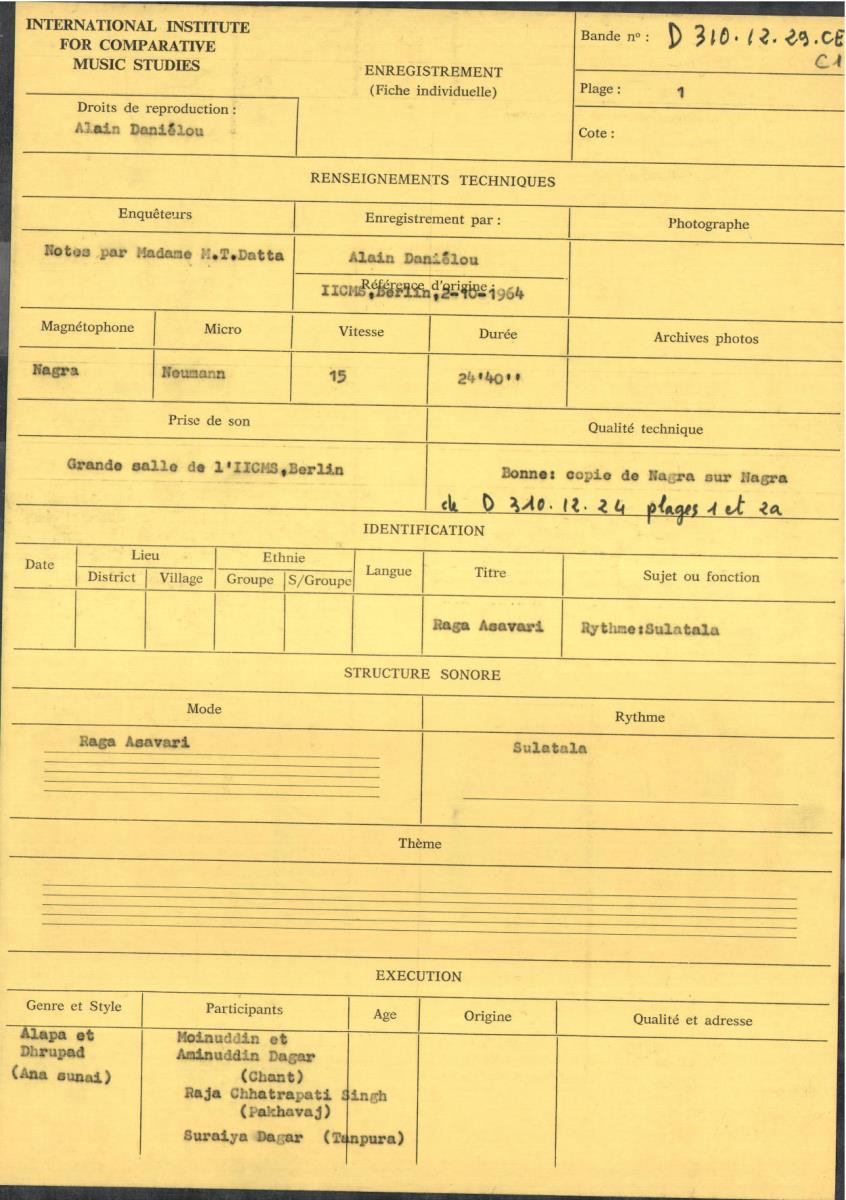 INTERNATIONAL INSTITUTE
FOR COMPARATIVE
MUSIC STUDIES
Droits de reproduction :
Alain Daniélou
ENREGISTREMENT
(Fiche individuelle)
Bande nº : D 310.12.29.CE
C1
Plage : 1
Cote :
RENSEIGNEMENTS TECHNIQUES
Enquêteurs
Enregistrement par :
Photographe
Notes par Madame M.T.Datta
Alain Daniélou
Référence d'origine :
IICMS,Berlin,2-10-1964
Magnétophone
Micro
Vitesse
Durée
Archives photos
Nagra
Neumann
15
24'40''
Prise de son
Qualité technique
Grande salle de l'IICMS,Berlin
Bonne: copie de Nagra sur Nagra
de D 310.12.24 plages 1 et 2a
IDENTIFICATION
Date
Lieu
District
Village
Ethnie
Groupe
S/Groupe
Langue
Titre
Sujet ou fonction
Raga Asavari
Rythme:Sulatala
STRUCTURE SONORE
Mode
Rythme
Raga Asavari
Sulatala
Thème
EXECUTION
Genre et Style
Participants
Age
Origine
Qualité et adresse
Alapa et
Dhrupad
(Ana sunai)
Moinuddin et
Aminuddin Dagar
(Chant)
Raja Chhatrapati Singh
(Pakhavaj)
Suraiya Dagar (Tanpura)